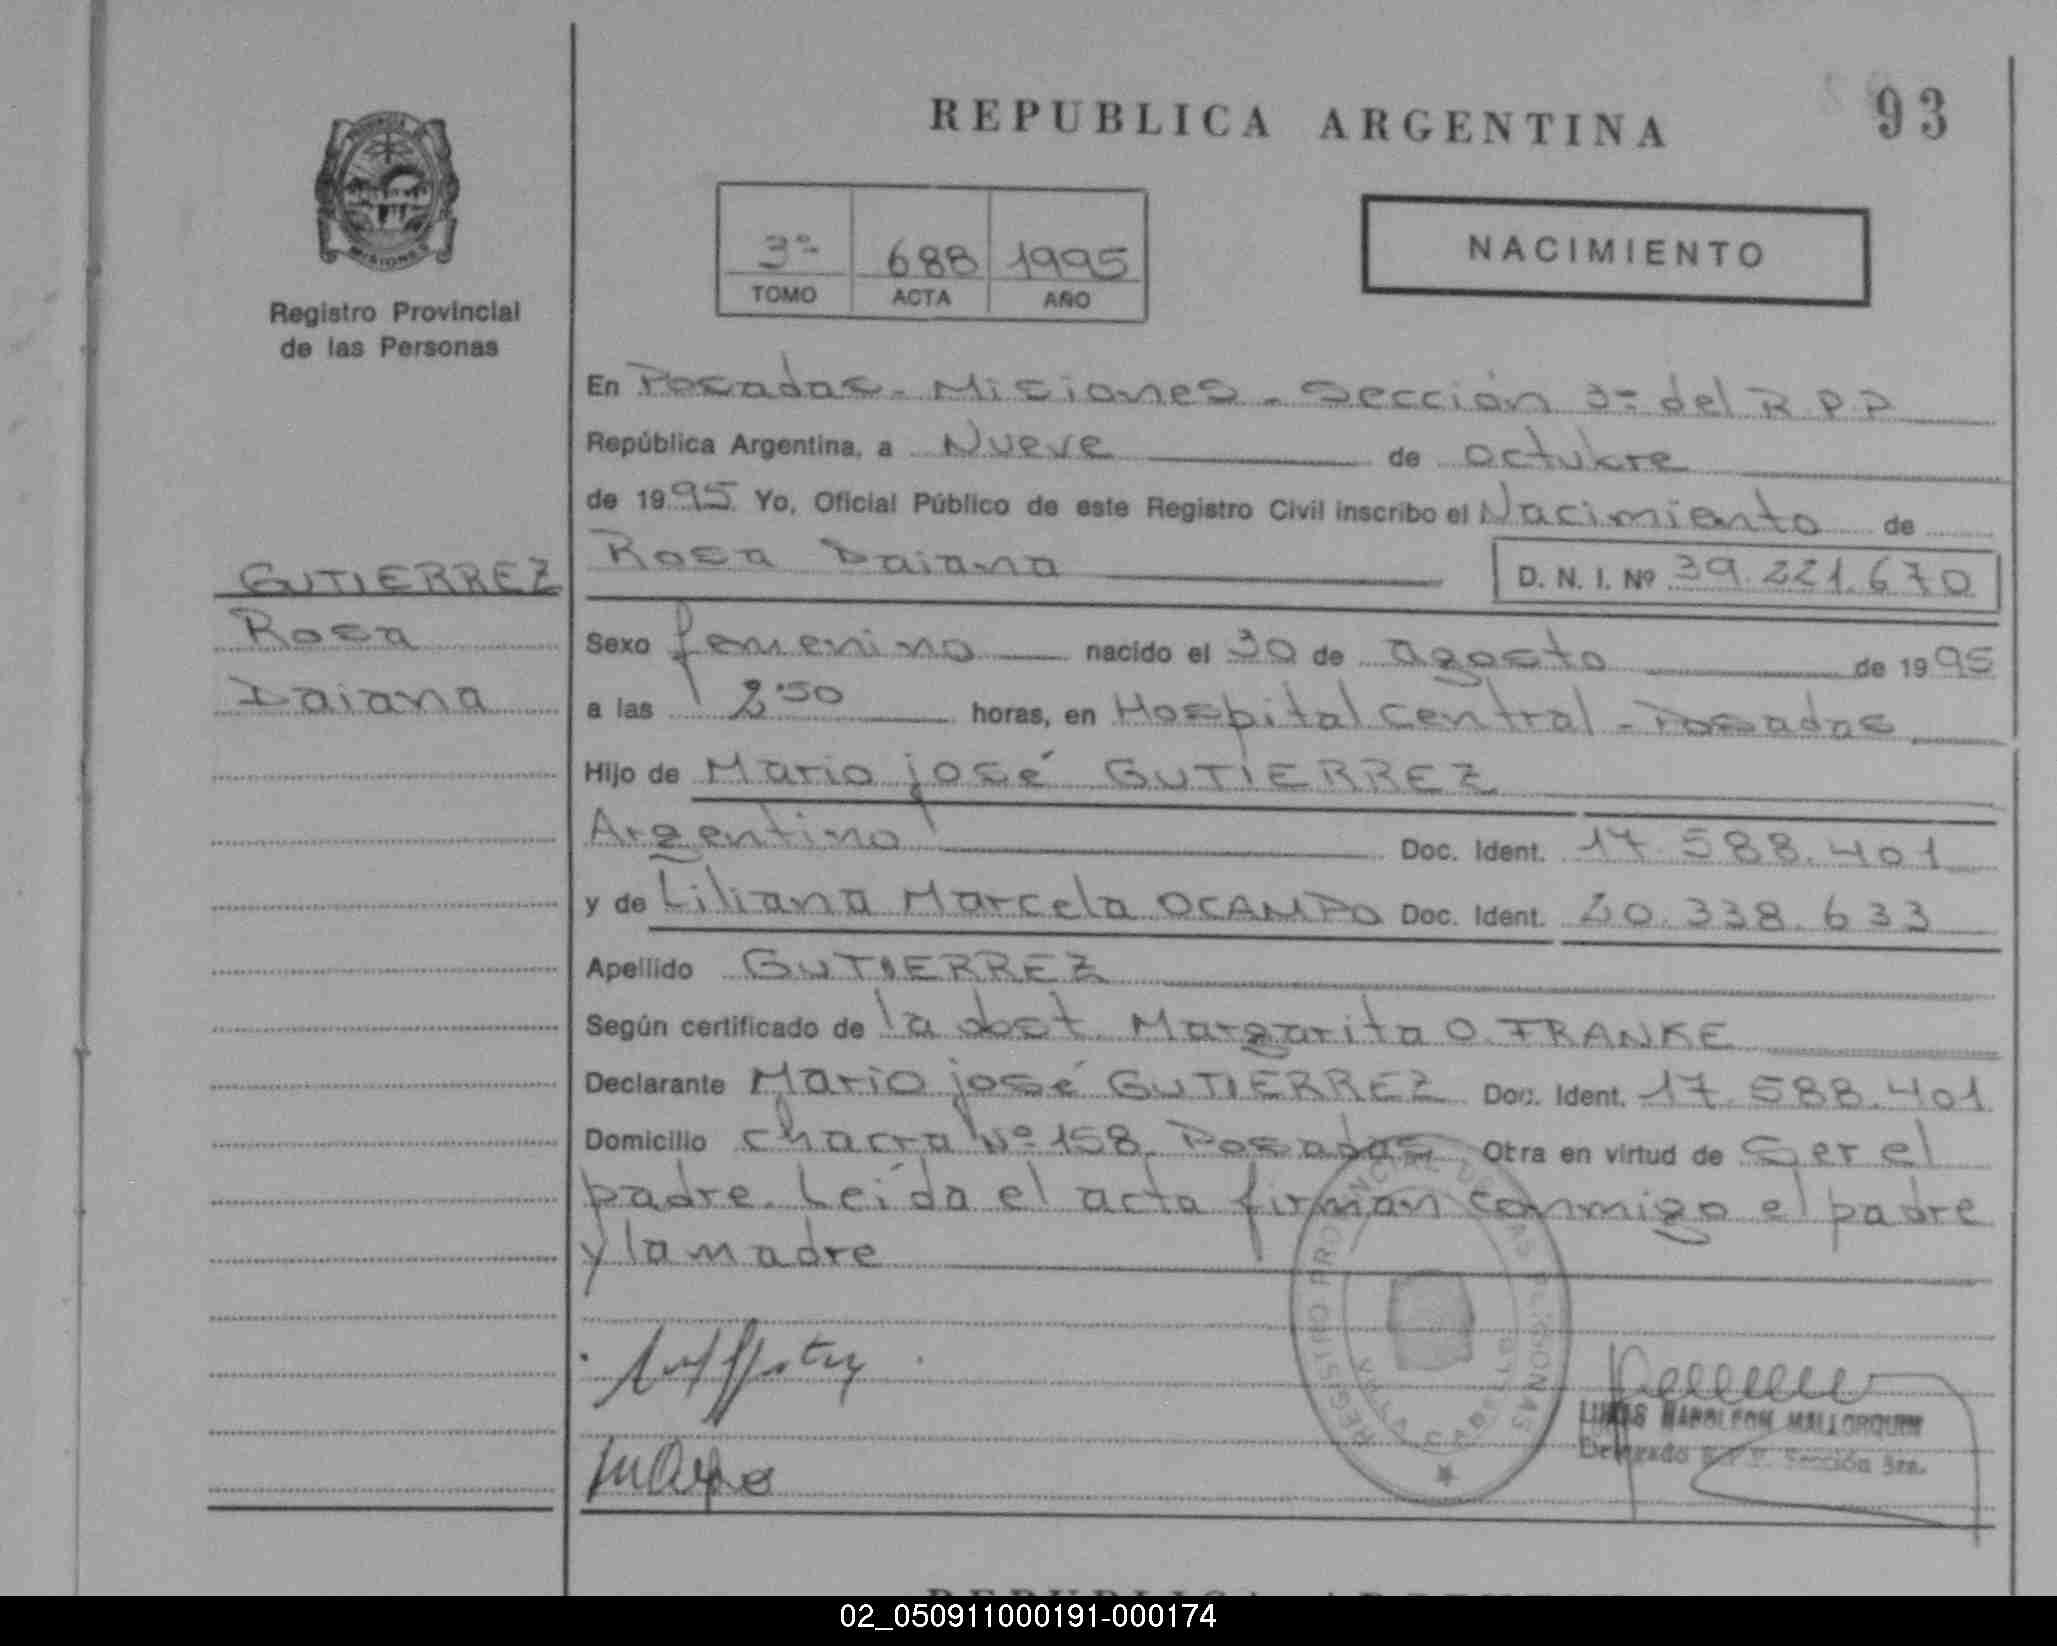 REPUBLICA ARGENTINA
93
PROVINCIA DE
MISIONES
Registro Provincial
de las Personas
3º 688 1995
TOMO ACTA AÑO
NACIMIENTO
En Posadas - Misiones - Sección 3º del R.P.P
República Argentina, a Nueve de octubre
de 1995 Yo, Oficial Público de este Registro Civil inscribo el Nacimiento de
Rosa Daiana D. N. I. Nº 39.221.670
GUTIERREZ
Rosa
Daiana
Sexo femenino nacido el 30 de agosto de 1995
a las 2:50 horas, en Hospital Central - Posadas
Hijo de Mario josé GUTIERREZ
Argentino Doc. Ident. 17.588.401
y de Liliana Marcela OCAMPO Doc. Ident. 20.338.633
Apellido GUTIERREZ
Según certificado de la obst. Margarita O. FRANKE
Declarante Mario josé GUTIERREZ Doc. Ident. 17.588.401
Domicilio chacra Nº 158. Posadas Otra en virtud de ser el
padre. Leída el acta firman conmigo el padre
y la madre
REGISTRO PROVINCIAL DE LAS PERSONAS
NAPOLEON MALLORQUIN
Delegado R.P.P. Sección 3ra.
REPUBLICA ARGENTINA
02_050911000191-000174